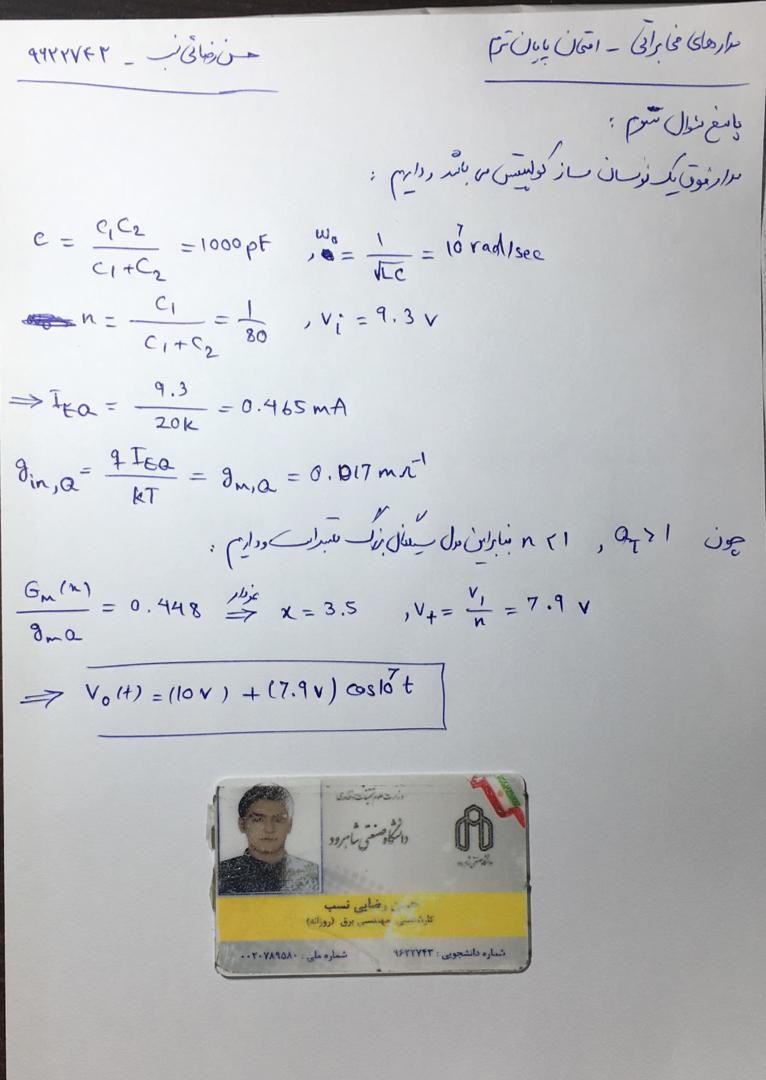 مدارهای مخابراتی - امتحان پایان ترم
حسن رضائی نسب - ۹۶۲۲۷۴۳
پاسخ سوال سوم :
مدار فوق یک نوسان ساز کولپیتس می باشد و داریم :
C = C₁C₂ / (C₁+C₂) = 1000 pF , ω₀ = 1/√LC = 10⁷ rad/sec
n = C₁ / (C₁+C₂) = 1/80 , Vᵢ = 9.3 v
⇒ I_EQ = 9.3 / 20K = 0.465 mA
g_in,Q = q I_EQ / KT = g_m,Q = 0.017 m℧⁻¹
چون Q_T > 1 , n < 1 بنابراین مدل سیگنال بزرگ معتبر است و داریم :
G_m(x) / g_mQ = 0.448 ⇒ نمودار x = 3.5 , V_t = V₁/n = 7.9 v
⇒ V₀(t) = (10 v) + (7.9 v) cos10⁷t
وزارت علوم تحقیقات و فناوری
دانشگاه صنعتی شاهرود
رضایی نسب
کارشناسی مهندسی برق (روزانه)
شماره دانشجویی : ۹۶۲۲۷۴۳
شماره ملی : ۰۰۲۰۷۸۹۵۸۰